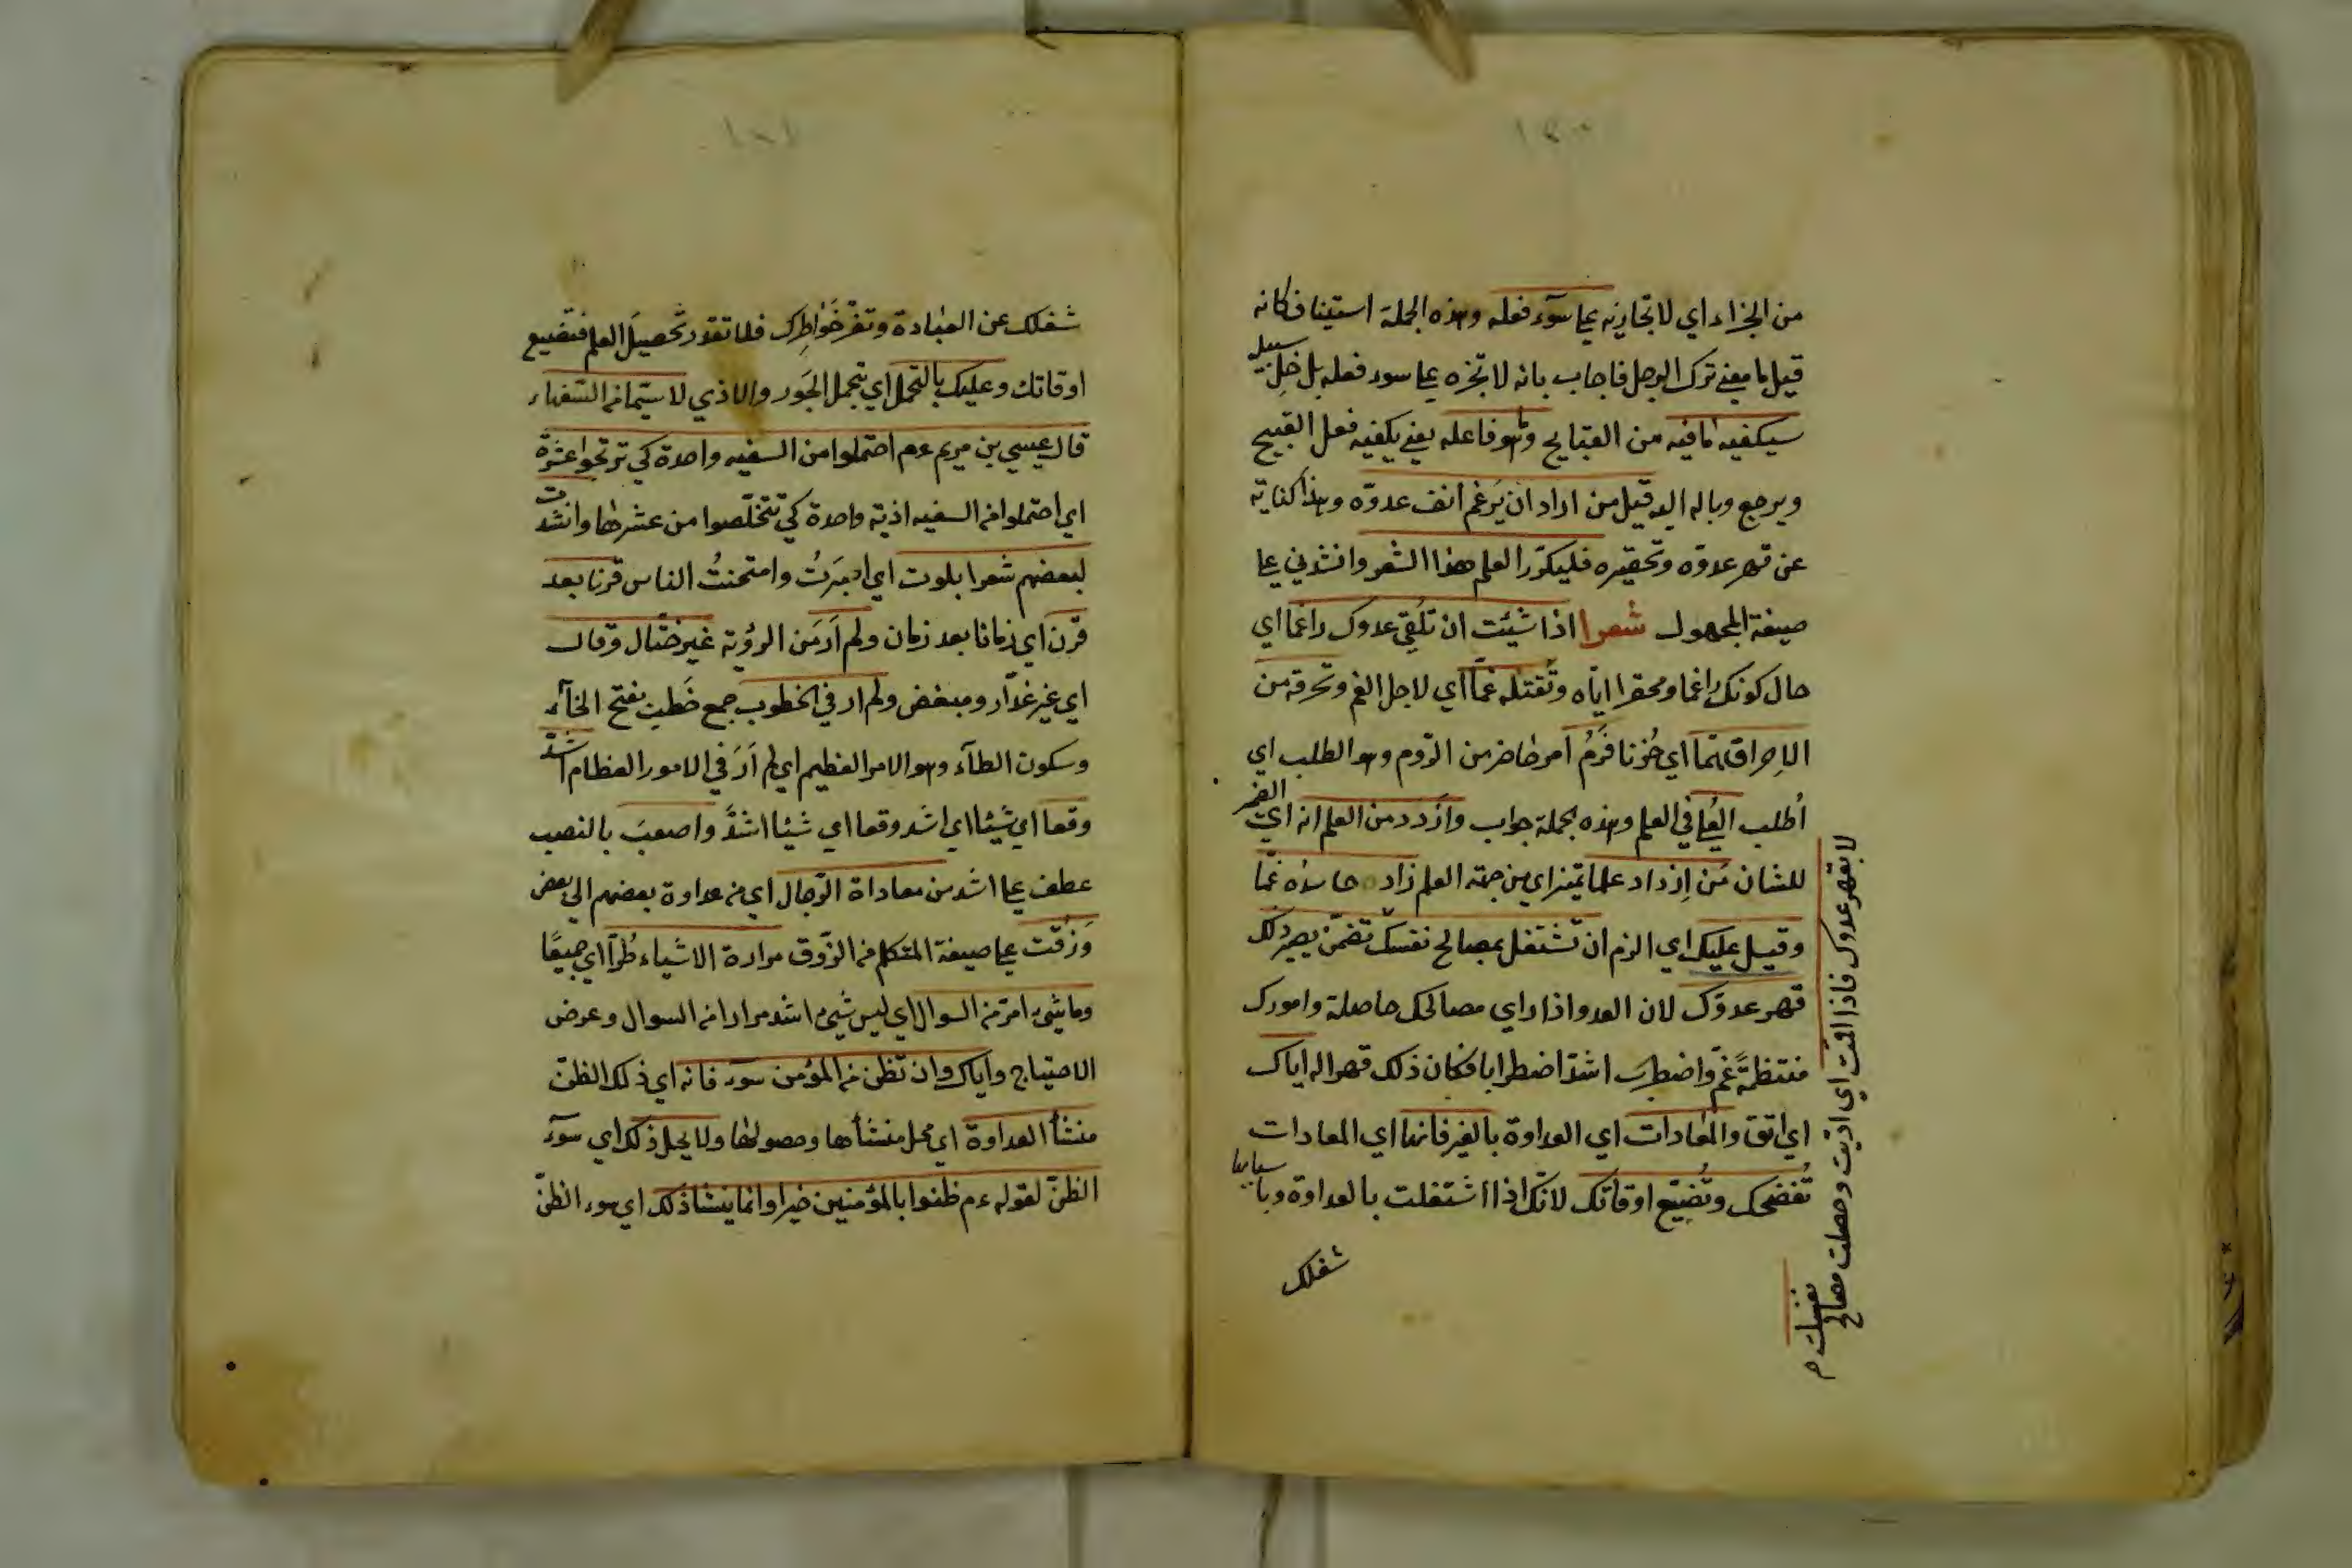 من الجزاء اي لا تجازيه علي سوء فعله وهذه الجملة استينافكانه
قيل ما معني ترك الرجل فاجاب بانه لا تجزه علي سوء فعله بل خل سبيله
سيكفيه ما فيه من القبايح وما هو فاعله يعني يكفيه فعل القبيح
ويرجع وباله اليه قيل من اراد ان يرغم انف عدوّه وهذا كناية
عن قهر عدوّه وتحقيره فليكرّر العلم هذا الشعر وانشدني علي
صيغة المجهول شعرا اذا شيئت ان تلقي عدوك راغما اي
حال كونك راغما ومحقرا ايّاه وتقتله غمّا اي لاجل الغم وتحرقه من
الاحراق همّا اي حُزنا فرُمْ امر حاضر من الرّوم وهو الطلب اي
اُطلب العُلي في العلم وهذه الجملة جواب وازدد من العلم انه اي الضمير
للشان مَن اِزداد علما تميز اي من جهة العلم زاد حاسده غمّا
وقيل عليك اي الزم ان تشتغل بمصالح نفسك تضمّن بصير ذلك
قهر عدوّك لان العدو اذا راي مصالحك حاصلة وامورك
منتظمةً غمّ واضطرب اشدّ اضطرابا فكان ذلك قهرا له اياك
اي اتق والمعادات اي العداوة بالغير فانها اي المعادات
تُفضحك وتُضيّع اوقاتك لانّك اذا اشتغلت بالعداوة وباسبابها
شغلك
لا بقهر عدوك فاذا اقمت اي اديت وحصلت مصالح
نفسك م
١٨١
شغلك عن العبادة وتفرّ خَواطِرك فلا تقدر تحصيلَ العلم فتضيع
اوقاتك وعليك بالتحمل اي تحمل الجَور والاذي لا سيّما من السّفهاء
قال عيسي بن مريم ءم احتملوا من السفيه واحدة كي تربحوا عشرة
اي احتملوا من السفيه اذية واحدة كي تتخلّصوا من عشرها وانشدت
لبعضهم شعرا بلوت اي اختبرتُ وامتحنتُ الناس قرنا بعد
قرن اي زمانا بعد زمان ولم اَرَ من الرؤية غير ختّال وقال
اي غير غدّار ومبغض ولم ار في الخطوب جمع خَطب بفتح الخاء
وسكون الطاء وهو الامر العظيم اي لم اَرَ في الامور العظام اشدّ
وقعا اي شيئا اي اشد وقعا اي شيئا اشدَّ واصعبَ بالنصب
عطف علي اشد من معاداة الرّجال اي من عداوة بعضهم الي بعض
وَزُقت علي صيغة المتكلم من الزّوق مرارة الاشياء طُرّا اي جميعًا
وما شيء امرّ من السوال اي ليس شيء اشد مرارا من السوال وعرض
الاحتياج واياك وان تظن من المؤمن سوء فانه اي ذلك الظنّ
منشأ العداوة اي محل منشأها وحصولها ولا يحل ذلك اي سوء
الظنّ لقوله ءم ظنوا بالمؤمنين خيرا وانما ينشا ذلك اي سوء الظنّ